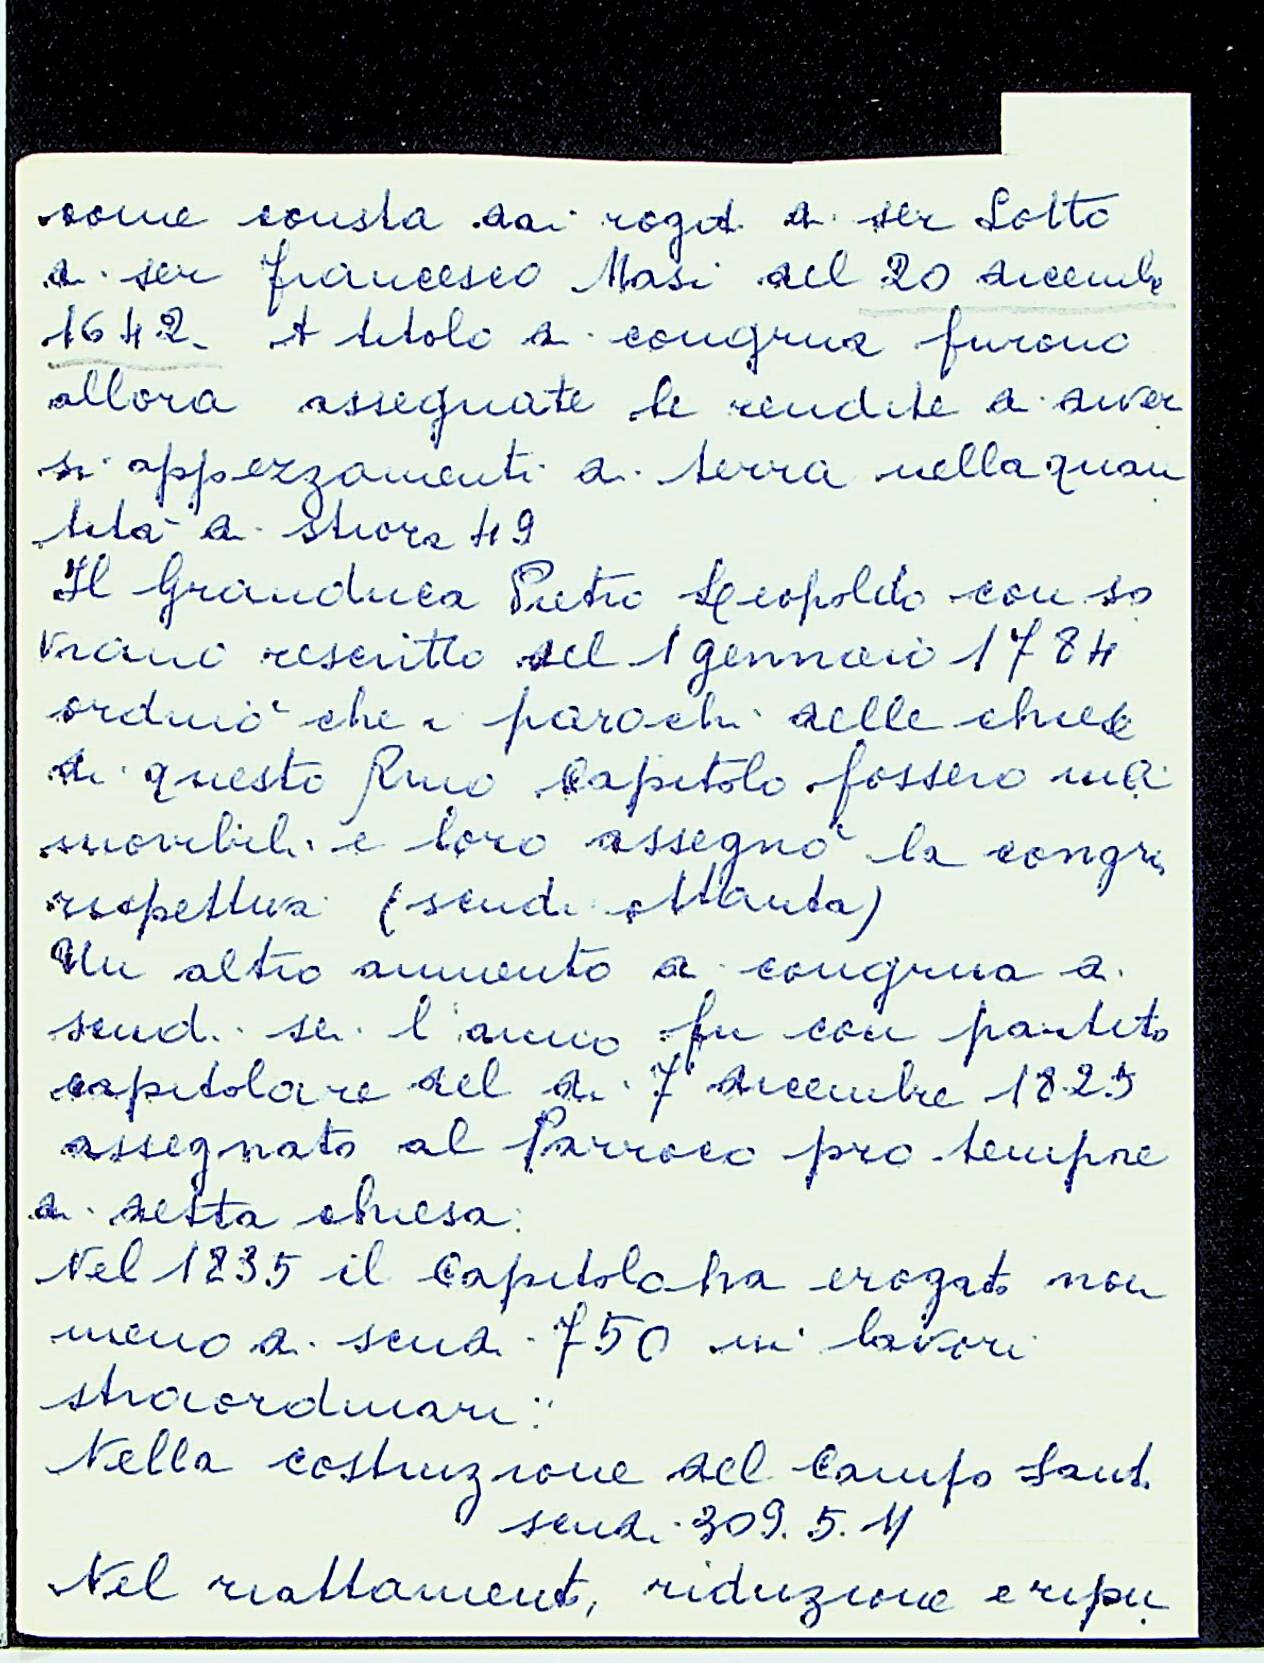 come consta dai rogiti di ser Lotto
di ser Francesco Masi del 20 dicembre
1642. A titolo di congrua furono
allora assegnate le rendite di diver
si appezzamenti di terra nella quan
tità di stiora 49
Il Granduca Pietro Leopoldo con so
vrano rescritto del 1 gennaio 1784
ordinò che i parochi delle chiese
di questo Rmo Capitolo fossero ina
movibili e loro assegnò la congrua
rispettiva (scudi ottanta)
Un altro aumento di congrua di
scudi sei l'anno fu con partito
capitolare del dì 7 dicembre 1825
assegnato al Parroco pro-tempore
di detta chiesa:
Nel 1835 il Capitolo ha erogato non
meno di scudi 750 in lavori
straordinari:
Nella costruzione del Campo Santo
scudi 309. 5. 11
Nel riattamento, riduzione e ripu